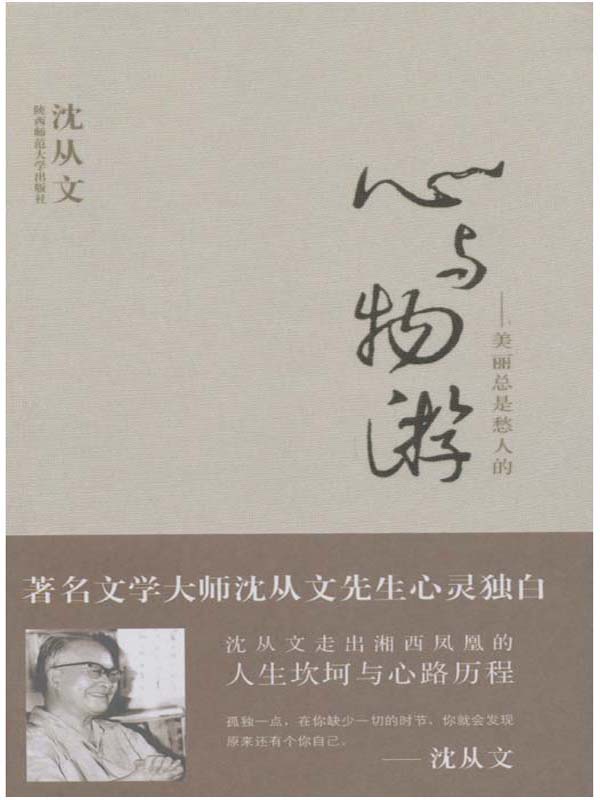 心与物游
——美丽总是愁人的
沈从文
陕西师范大学出版社
著名文学大师沈从文先生心灵独白
沈从文走出湘西凤凰的
人生坎坷与心路历程
孤独一点，在你缺少一切的时节，你就会发现
原来还有个你自己。
——沈从文